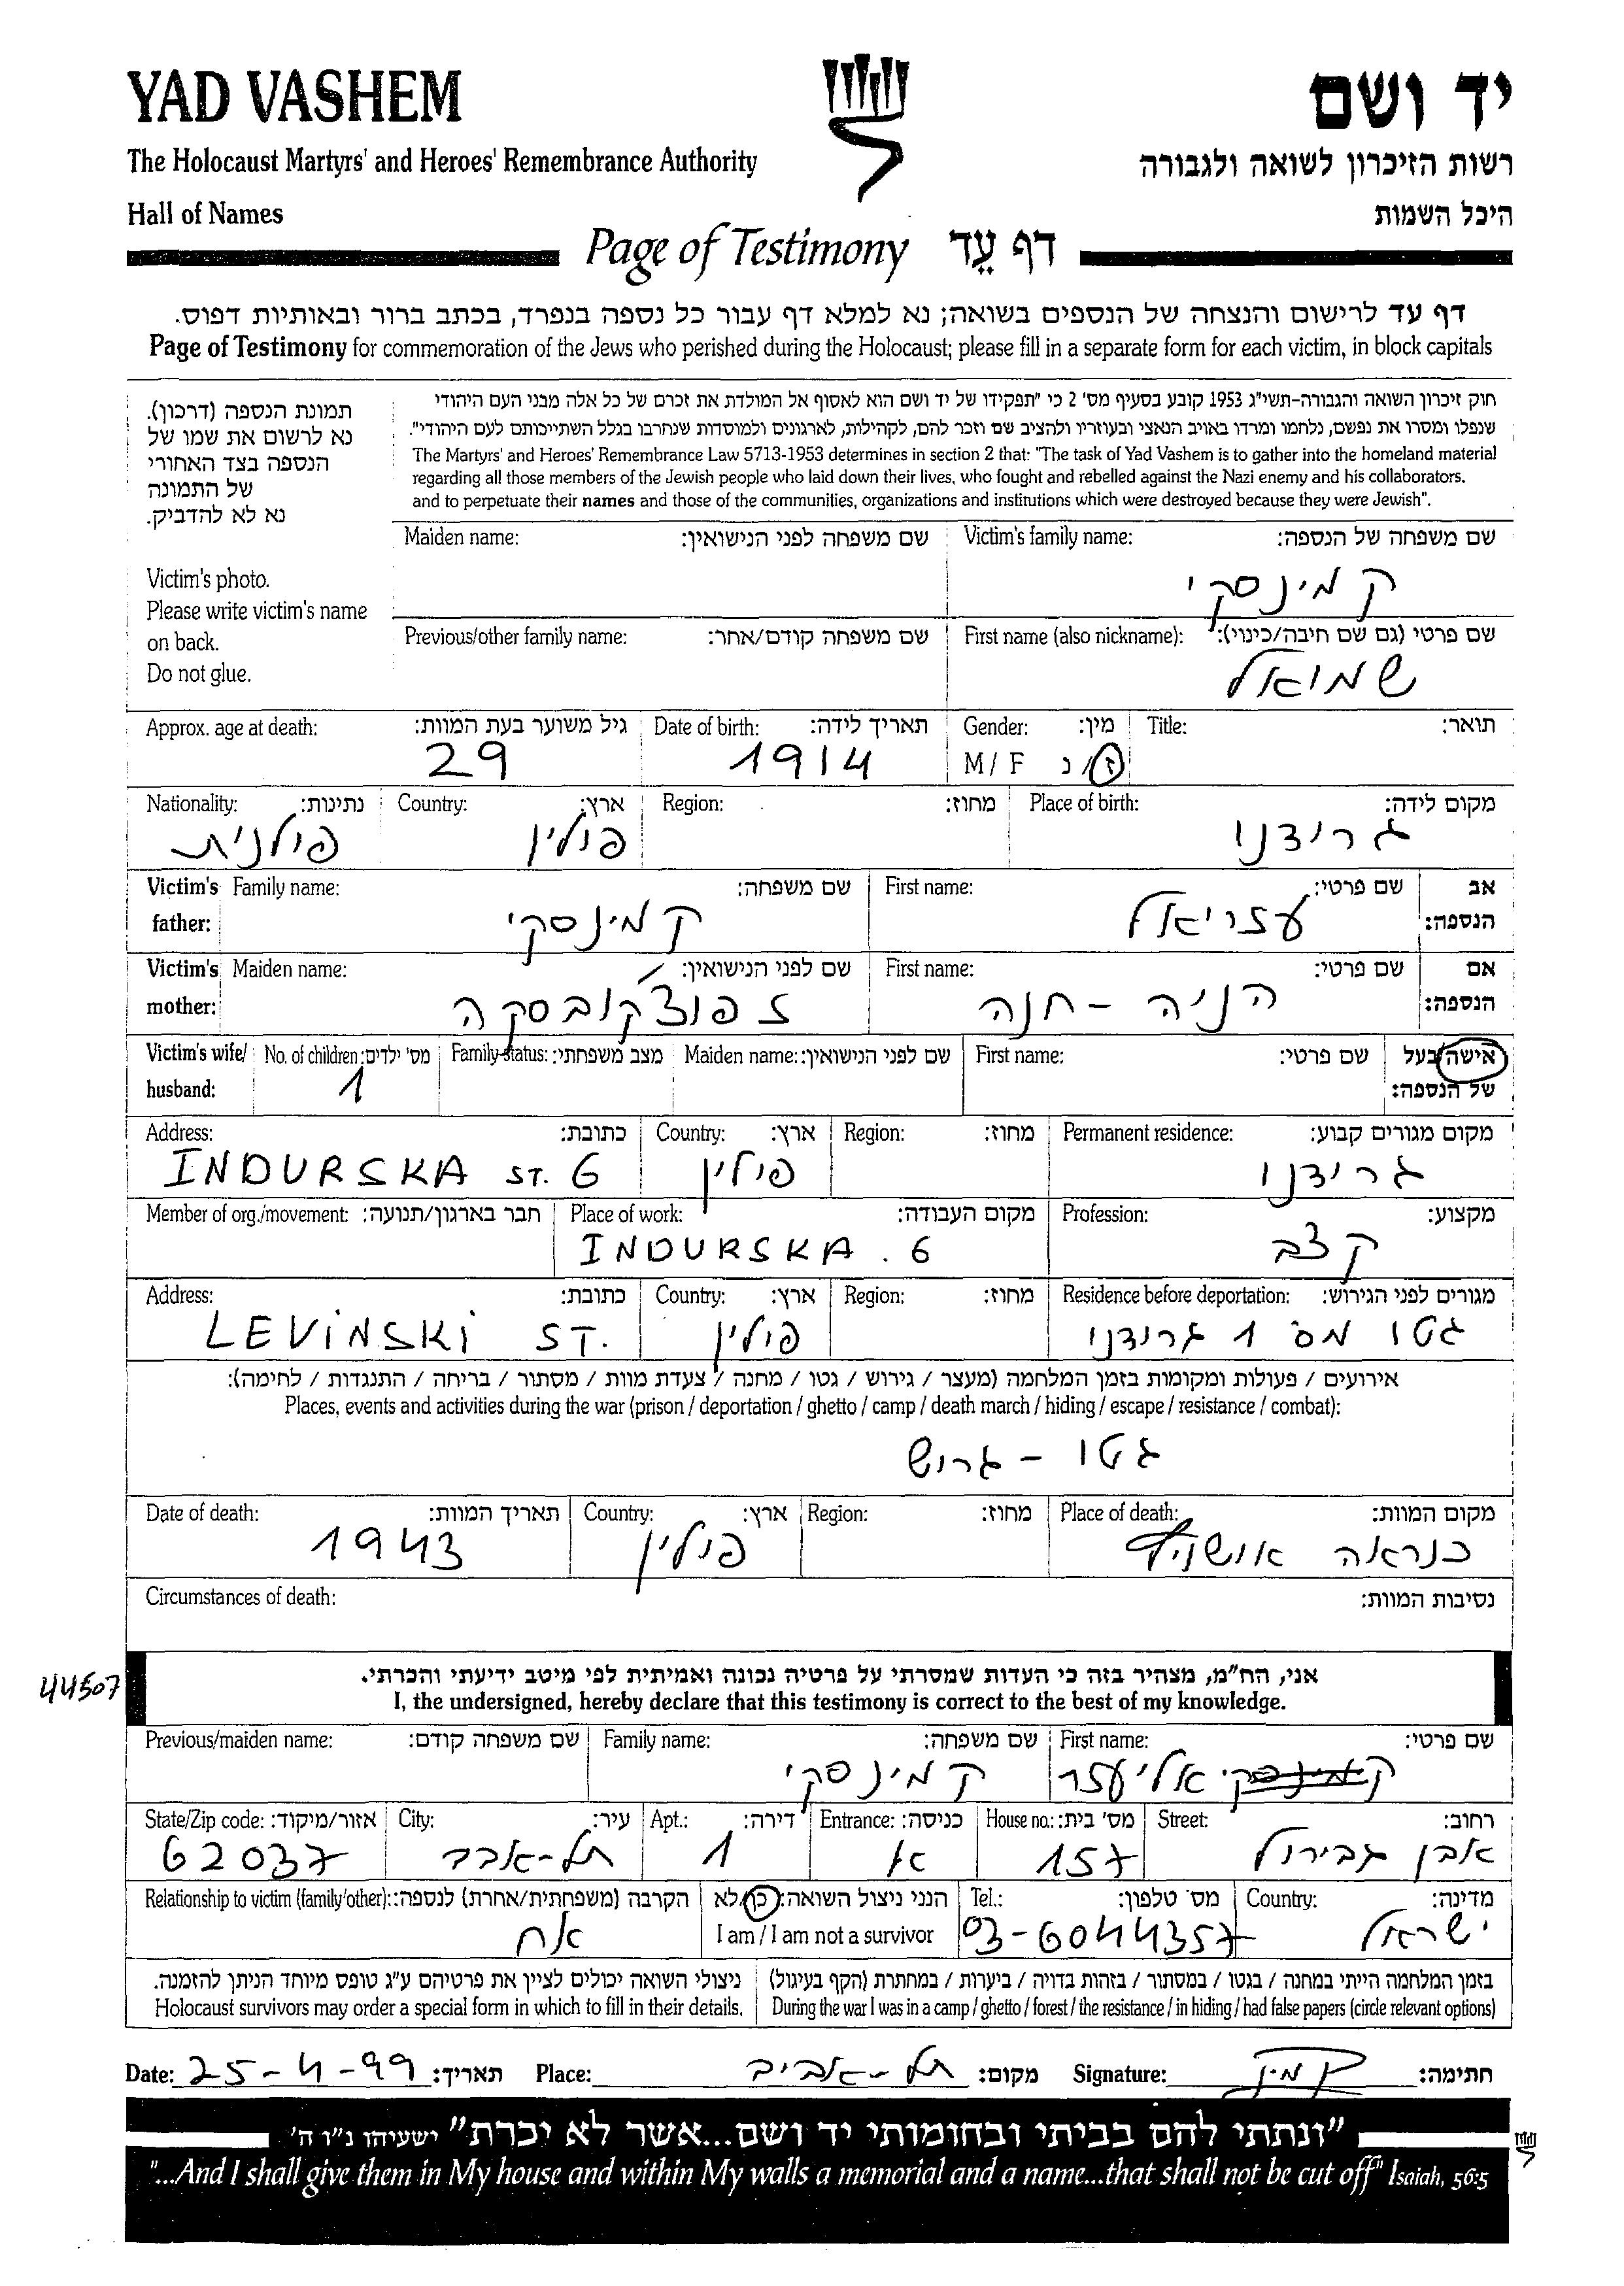 YAD VASHEM
יד ושם
The Holocaust Martyrs' and Heroes' Remembrance Authority
רשות הזיכרון לשואה ולגבורה
Hall of Names
היכל השמות
Page of Testimony דף עֵד
דף עד לרישום והנצחה של הנספים בשואה; נא למלא דף עבור כל נספה בנפרד, בכתב ברור ובאותיות דפוס.
Page of Testimony for commemoration of the Jews who perished during the Holocaust; please fill in a separate form for each victim, in block capitals
תמונת הנספה (דרכון).
נא לרשום את שמו של
הנספה בצד האחורי
של התמונה
נא לא להדביק.
Victim's photo.
Please write victim's name
on back.
Do not glue.
חוק זיכרון השואה והגבורה-תשי"ג 1953 קובע בסעיף מס' 2 כי "תפקידו של יד ושם הוא לאסוף אל המולדת את זכרם של כל אלה מבני העם היהודי
שנפלו ומסרו את נפשם, נלחמו ומרדו באויב הנאצי ובעוזריו ולהציב שם וזכר להם, לקהילות, לארגונים ולמוסדות שנחרבו בגלל השתייכותם לעם היהודי".
The Martyrs' and Heroes' Remembrance Law 5713-1953 determines in section 2 that: "The task of Yad Vashem is to gather into the homeland material
regarding all those members of the Jewish people who laid down their lives, who fought and rebelled against the Nazi enemy and his collaborators.
and to perpetuate their names and those of the communities, organizations and institutions which were destroyed because they were Jewish".
Maiden name: שם משפחה לפני הנישואין: Victim's family name: שם משפחה של הנספה:
קמינסקי
Previous/other family name: שם משפחה קודם/אחר: First name (also nickname): שם פרטי (גם שם חיבה/כינוי):
שמואל
Approx. age at death: גיל משוער בעת המוות: Date of birth: תאריך לידה: Gender: מין: Title: תואר:
29 1914 M / F ז/נ
Nationality: נתינות: Country: ארץ: Region: מחוז: Place of birth: מקום לידה:
פולנית פולין גרודנו
Victim's father: Family name: שם משפחה: First name: שם פרטי: אב הנספה:
קמינסקי עזריאל
Victim's mother: Maiden name: שם לפני הנישואין: First name: שם פרטי: אם הנספה:
זפוצ'קובסקה הניה - חנה
Victim's wife/ husband: No. of children: מס' ילדים: Family status: מצב משפחתי: Maiden name: שם לפני הנישואין: First name: שם פרטי: אישה/בעל של הנספה:
1
Address: כתובת: Country: ארץ: Region: מחוז: Permanent residence: מקום מגורים קבוע:
INDURSKA ST. 6 פולין גרודנו
Member of org./movement: חבר בארגון/תנועה: Place of work: מקום העבודה: Profession: מקצוע:
INDURSKA . 6 קצב
Address: כתובת: Country: ארץ: Region: מחוז: Residence before deportation: מגורים לפני הגירוש:
LEVINSKI ST. פולין גטו מס' 1 גרודנו
אירועים / פעולות ומקומות בזמן המלחמה (מעצר / גירוש / גטו / מחנה / צעדת מוות / מסתור / בריחה / התנגדות / לחימה):
Places, events and activities during the war (prison / deportation / ghetto / camp / death march / hiding / escape / resistance / combat):
גטו - גרוש
Date of death: תאריך המוות: Country: ארץ: Region: מחוז: Place of death: מקום המוות:
1943 פולין כנראה אושויץ
Circumstances of death: נסיבות המוות:
44507
אני, הח"מ, מצהיר בזה כי העדות שמסרתי על פרטיה נכונה ואמיתית לפי מיטב ידיעתי והכרתי.
I, the undersigned, hereby declare that this testimony is correct to the best of my knowledge.
Previous/maiden name: שם משפחה קודם: Family name: שם משפחה: First name: שם פרטי:
קמינסקי קמינסקי אליעזר
State/Zip code: אזור/מיקוד: City: עיר: Apt.: דירה: Entrance: כניסה: House no.: מס' בית: Street: רחוב:
62037 תל-אביב 1 א 157 אבן גבירול
Relationship to victim (family/other): הקרבה (משפחתית/אחרת) לנספה: הנני ניצול השואה: כן/לא Tel.: מס' טלפון: Country: מדינה:
אח I am / I am not a survivor 03-6044357 ישראל
ניצולי השואה יכולים לציין את פרטיהם ע"ג טופס מיוחד הניתן להזמנה. בזמן המלחמה הייתי במחנה / בגטו / במסתור / בזהות בדויה / ביערות / במחתרת (הקף בעיגול)
Holocaust survivors may order a special form in which to fill in their details. During the war I was in a camp / ghetto / forest / the resistance / in hiding / had false papers (circle relevant options)
Date: 25-4-99 תאריך: Place: תל-אביב מקום: Signature: קמין חתימה:
"ונתתי להם בביתי ובחומותי יד ושם...אשר לא יכרת" ישעיהו נ"ו ה'
"...And I shall give them in My house and within My walls a memorial and a name...that shall not be cut off" Isaiah, 56:5